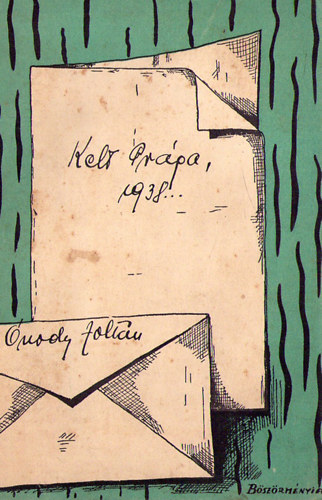 Kelt Prága,
1938...
Ónody Zoltán
BÖSZÖRMÉNYI